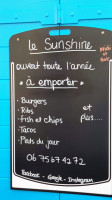 le Sunshine
ouvert toute l'année
* à emporter *
• Burgers
• Ribs
• Fish et chips
• Tacos
• Plats du jour
et
plus....
06 75 67 42 72
Facebook - Google - Instagram